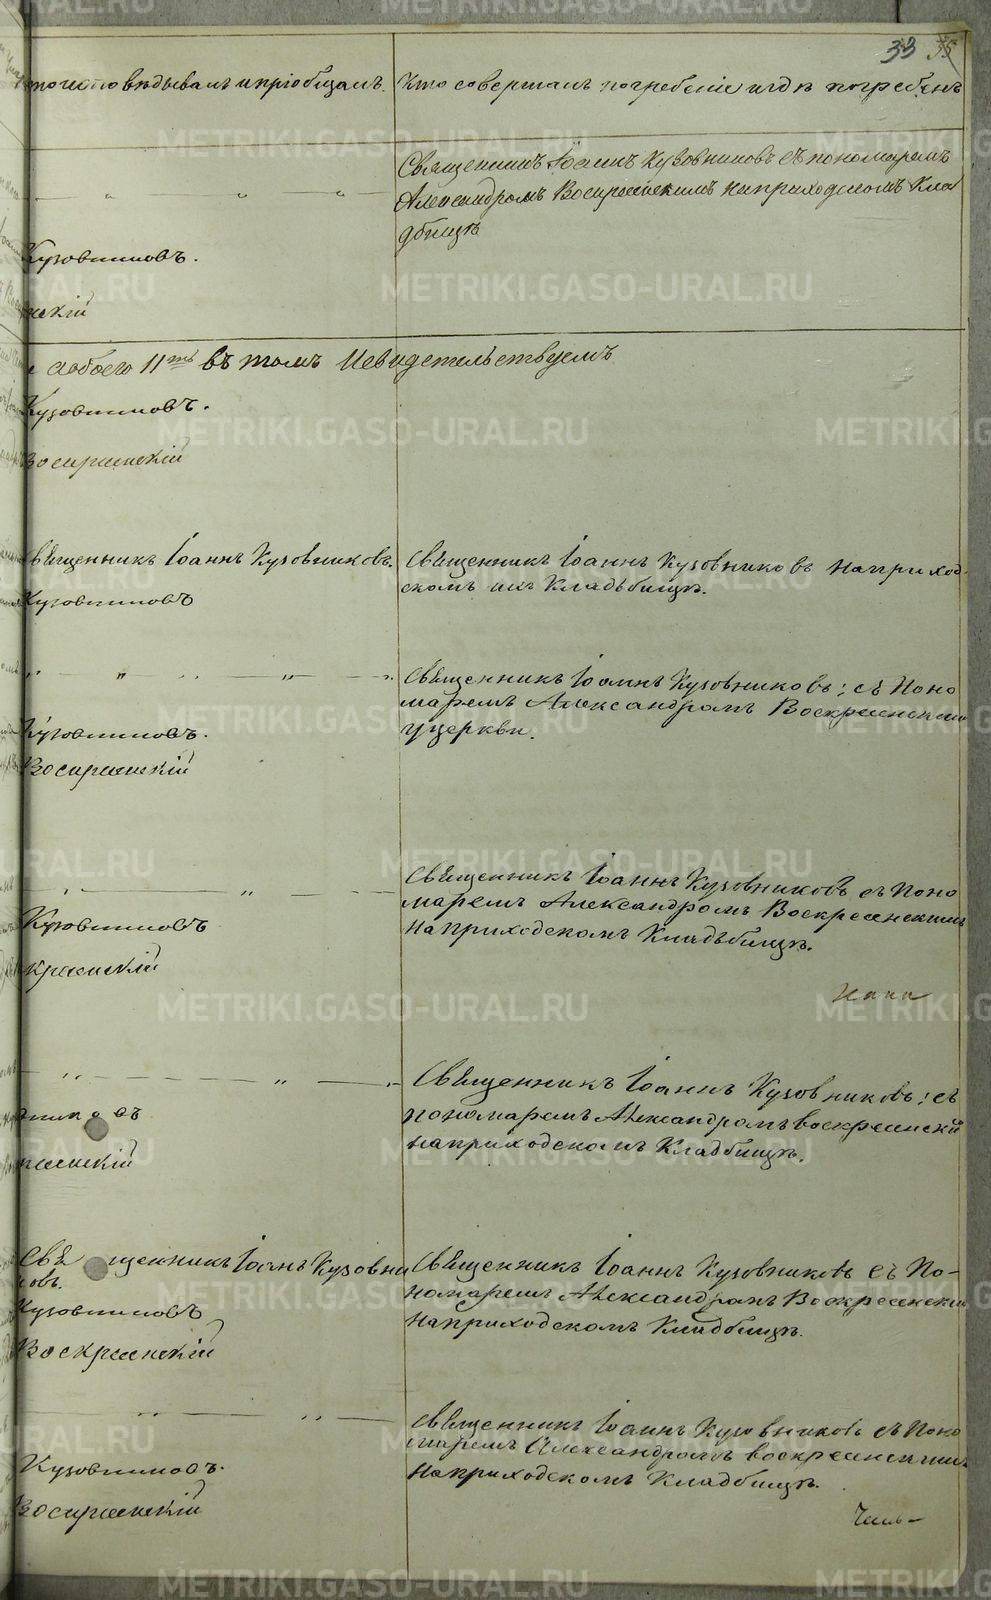 33 35
кто исповѣдывалъ и пріобщалъ.
Кто совершалъ погребеніе и гдѣ погребенъ
Священникъ Іоаннъ Кузовниковъ съ пономаремъ
Александромъ Воскресенскимъ на приходскомъ Кла
дбищѣ
Кузовниковъ.
нскій
обоего 11ть въ томъ и свидетельствуемъ
Кузовниковъ.
Воскресенскій
Священникъ Іоаннъ Кузовниковъ.
Священникъ Іоаннъ Кузовниковъ на приход-
скомъ ихъ Кладьбищѣ.
Кузовниковъ
Священникъ Іоаннъ Кузовниковъ; съ Поно
маремъ Александромъ Воскресенскимъ
у церкви.
Кузовниковъ.
Воскресенскій
Священникъ Іоаннъ Кузовниковъ съ Поно
маремъ Александромъ Воскресенскимъ
на приходскомъ Кладьбищѣ.
Кузовниковъ
кресенскій
Священникъ Іоаннъ Кузовниковъ; съ
пономаремъ Александромъ воскресенскй
на приходскомъ Кладбищѣ.
никовъ
ресенскій
Священникъ Іоаннъ Кузовни
ковъ.
Священникъ Іоаннъ Кузовниковъ съ По-
номаремъ Александромъ Воскресенским
на приходскомъ Кладбищѣ.
Кузовниковъ
Воскресенскій
Священникъ Іоаннъ Кузовниковъ съ Поно
маремъ Александромъ воскресенскимъ
на приходскомъ Кладбищѣ.
Кузовниковъ.
Воскресенскій
METRIKI.GASO-URAL.RU